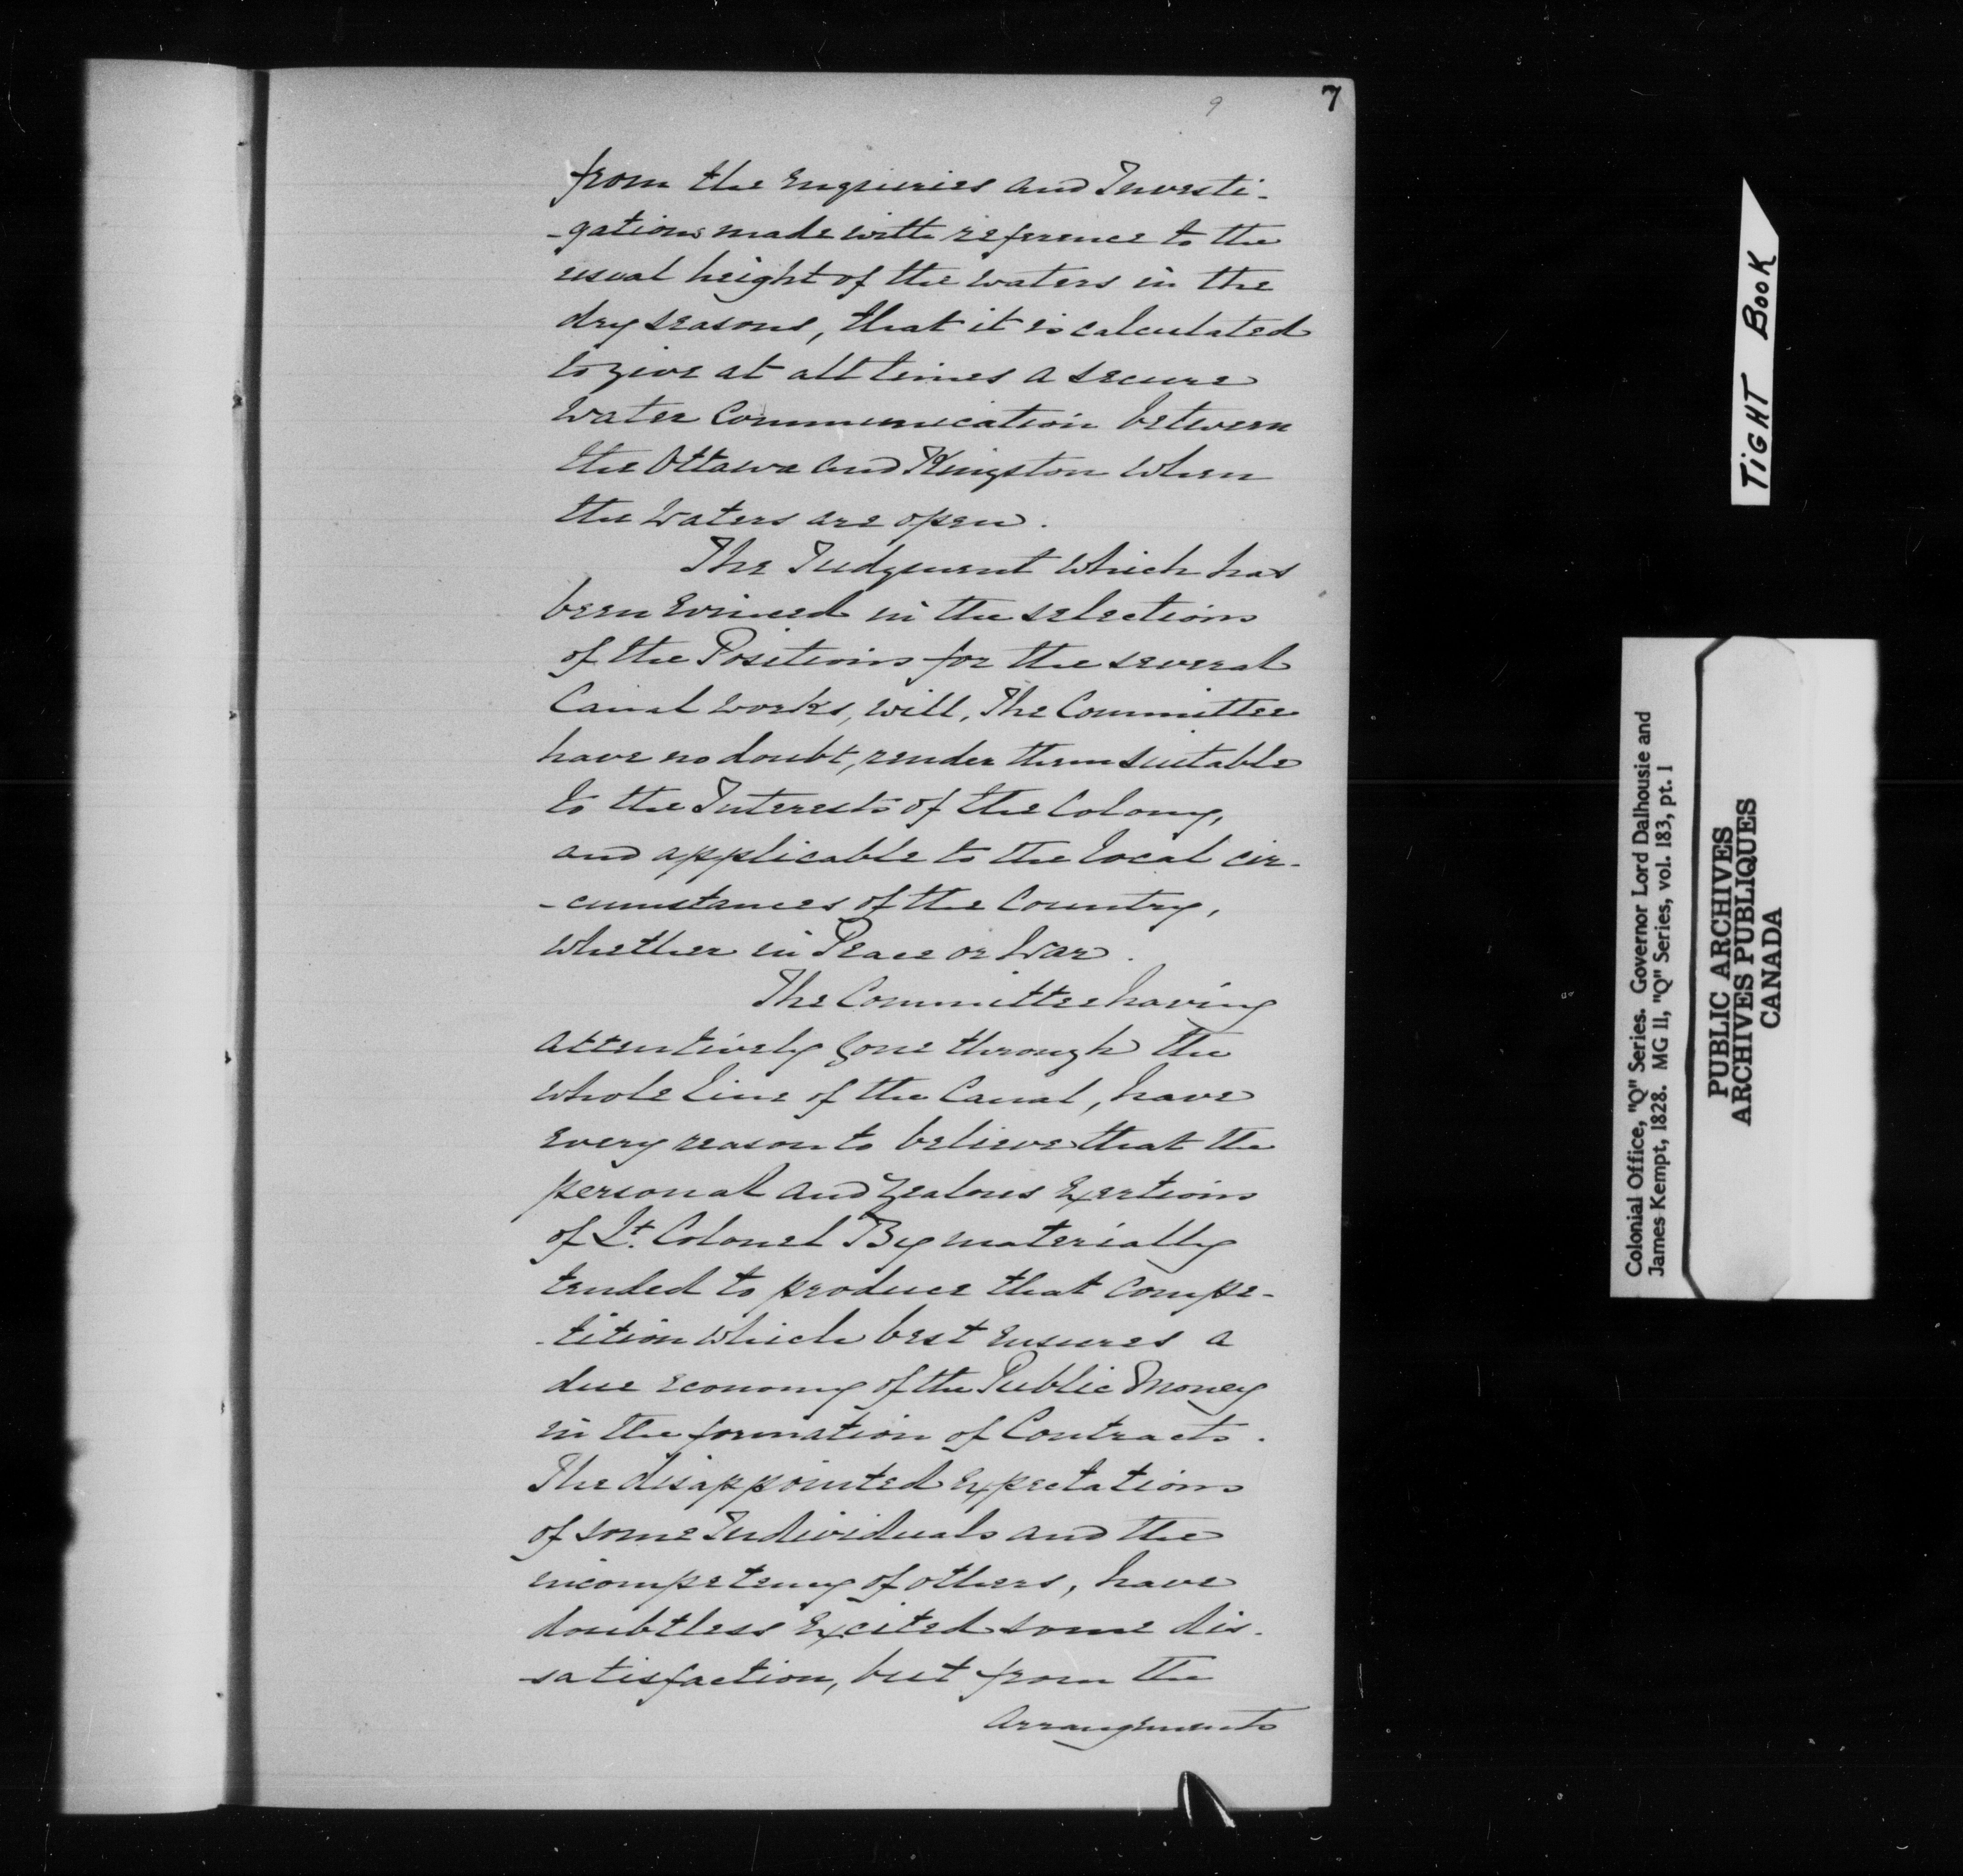 9
7
from the Enquiries and Investi-
-gations made with reference to the
usual height of the waters in the
dry seasons, that it is calculated
to give at all times a secure
Water Communication between
the Ottawa and Kingston when
the Waters are open.
The Judgement which has
been Evinced in the selections
of the Positions for the several
Canal works, will, The Committee
have no doubt, render them suitable
to the Interests of the Colony,
and applicable to the local cir-
-cumstances of the Country,
whether in Peace or War.
The Committee having
attentively gone through the
whole line of the Canal, have
Every reason to believe that the
personal and zealous Exertions
of Lt. Colonel By materially
tended to produce that Compe-
-tition which best Ensures a
due Economy of the Public Money
in the formation of Contracts.
The disappointed Expectations
of some Individuals and the
incompetency of others, have
doubtless Excited some dis-
-satisfaction, but from the
Arrangements
TIGHT BOOK
Colonial Office, "Q" Series. Governor Lord Dalhousie and
James Kempt, 1828. MG 11, "Q" Series, vol. 183, pt. 1
PUBLIC ARCHIVES
ARCHIVES PUBLIQUES
CANADA